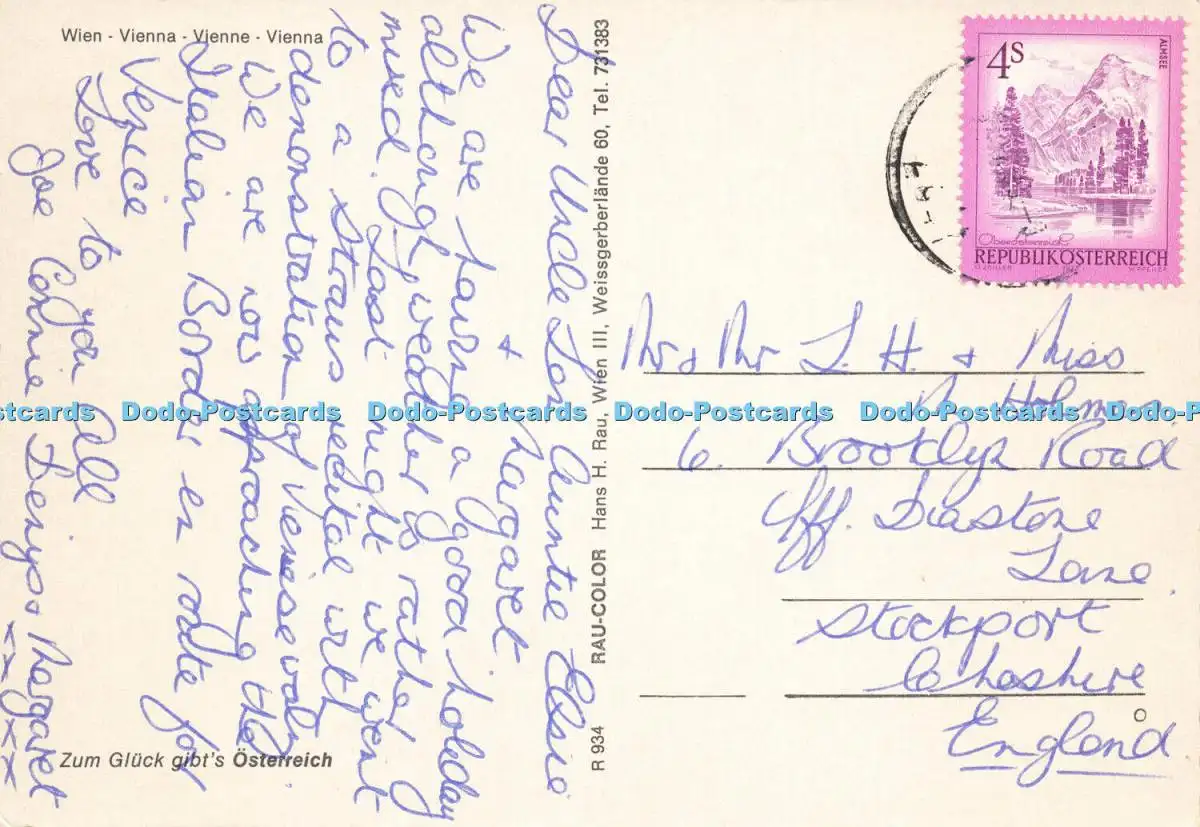 Wien - Vienna - Vienne - Vienna
Dear Uncle Les, Auntie Elsie
+ Margaret
We are having a good holiday
although, weather is rather
mixed. Last night we went
to a Straus recital with
demonstration of Vennise waltz
We are now approaching the
Italian Border en route for
Venice
Love to you all
Joe Connie Denys + Margaret
x x x x
Zum Glück gibt's Österreich
R 934 RAU-COLOR Hans H. Rau, Wien III, Weissgerberlände 60, Tel. 731383
4S
ALMSEE
Oberösterreich
REPUBLIK ÖSTERREICH
Mr & Mr L. H. + Miss
M. Holman
6. Brooklyn Road
Off. Diastone
Lane
Stockport
Cheshire
England
Dodo-Postcards Dodo-Postcards Dodo-Postcards Dodo-Postcards Dodo-Postcards